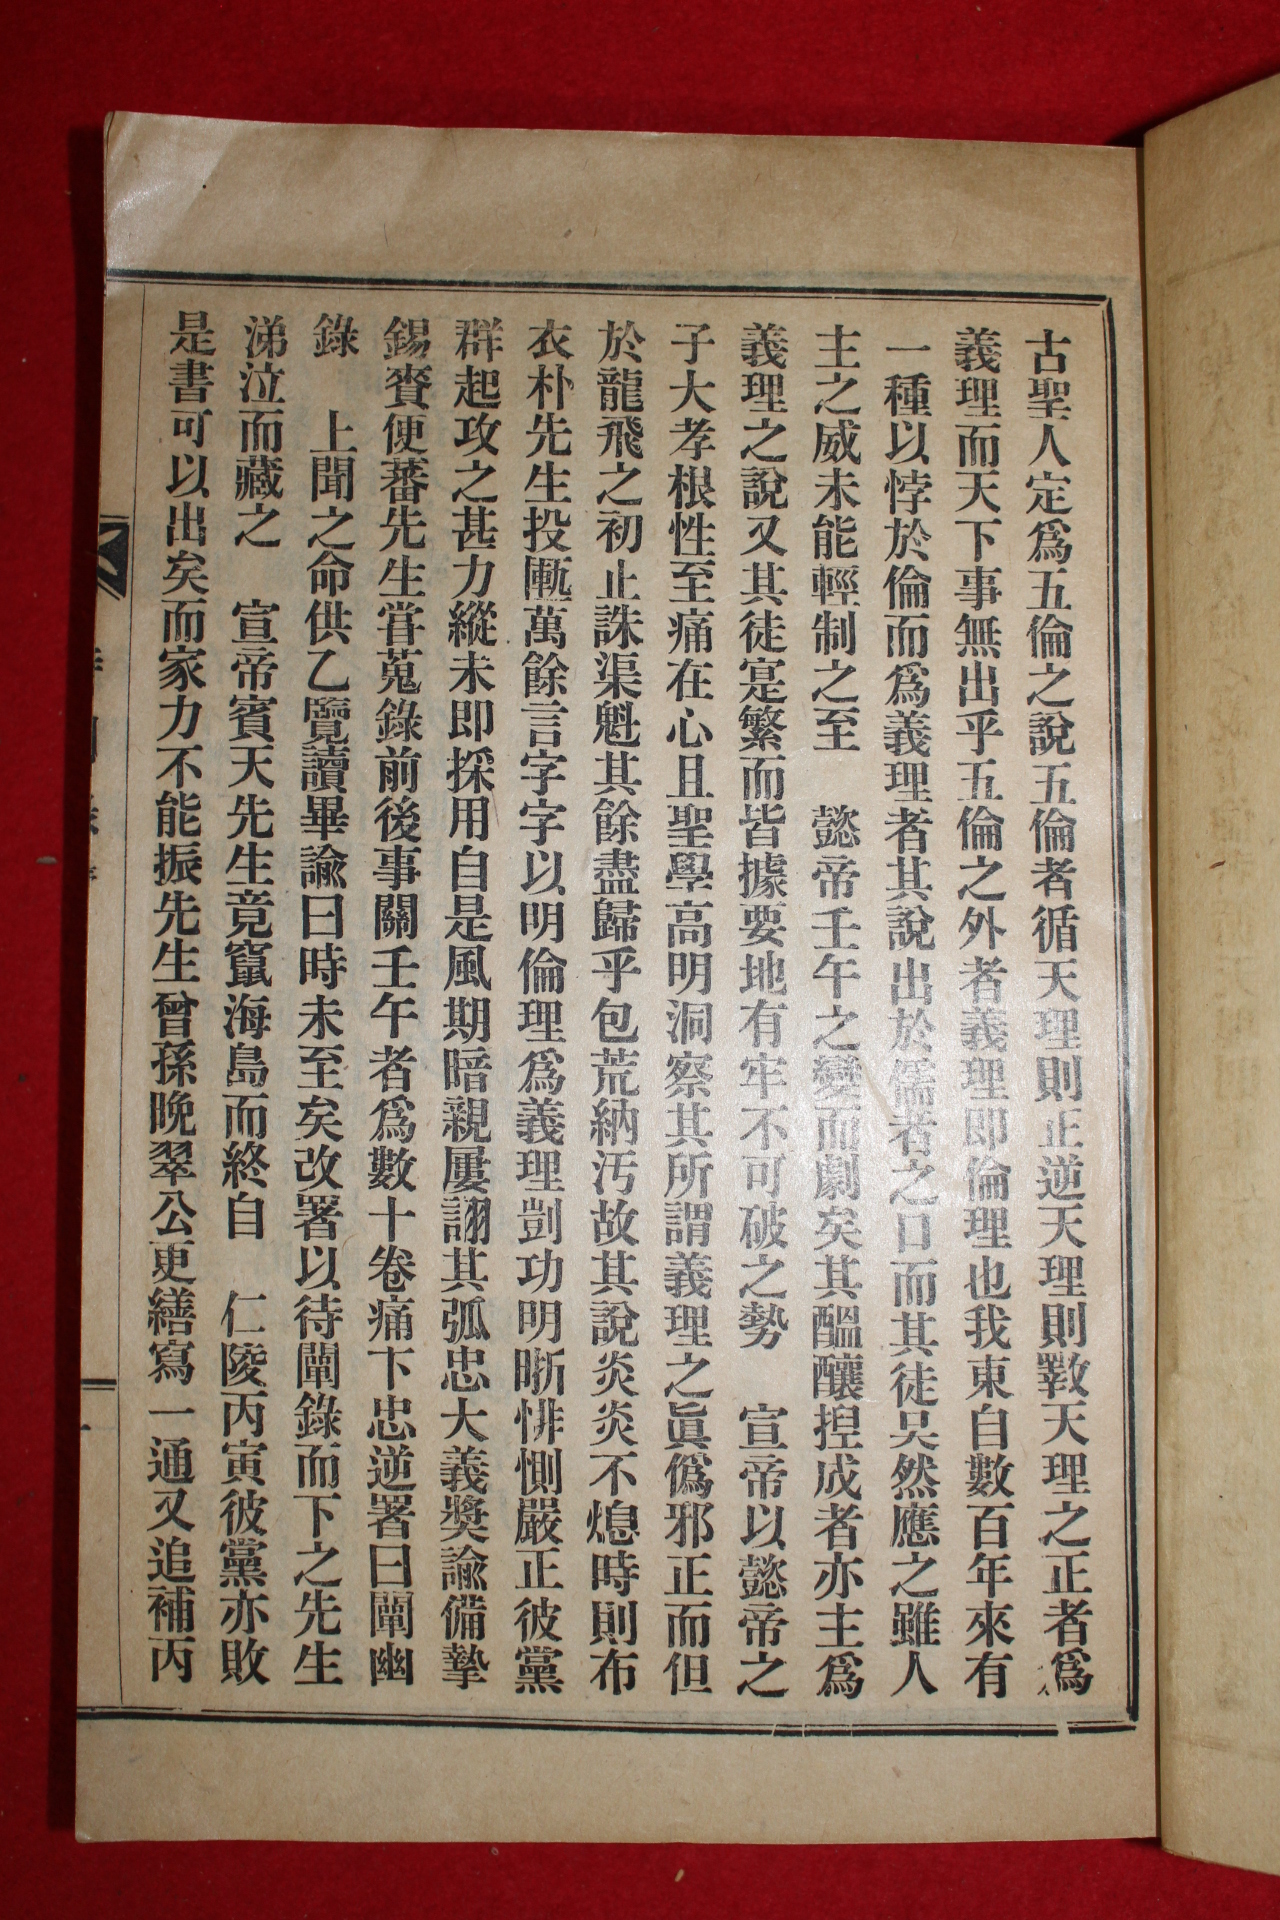 古聖人定爲五倫之說五倫者循天理則正逆天理則斁天理之正者爲
義理而天下事無出乎五倫之外者義理即倫理也我東自數百年來有
一種以悖於倫而爲義理者其說出於儒者之口而其徒吴然應之雖人
主之威未能輕制之至　懿帝壬午之變而劇矣其醞釀揑成者亦主爲
義理之說又其徒寔繁而皆據要地有牢不可破之勢　宣帝以懿帝之
子大孝根性至痛在心且聖學高明洞察其所謂義理之眞僞邪正而但
於龍飛之初止誅渠魁其餘盡歸乎包荒納汚故其說炎炎不熄時則布
衣朴先生投匭萬餘言字字以明倫理爲義理剴功明晣悱惻嚴正彼黨
群起攻之甚力縱未即採用自是風期暗親屢詡其弧忠大義奬諭備摯
錫賚便蕃先生甞蒐錄前後事關壬午者爲數十卷痛下忠逆署曰闡幽
錄　上聞之命供乙覽讀畢諭曰時未至矣改署以待闡錄而下之先生
涕泣而藏之　宣帝賓天先生竟竄海島而終自　仁陵丙寅彼黨亦敗
是書可以出矣而家力不能振先生曾孫晩翠公更繕寫一通又追補丙